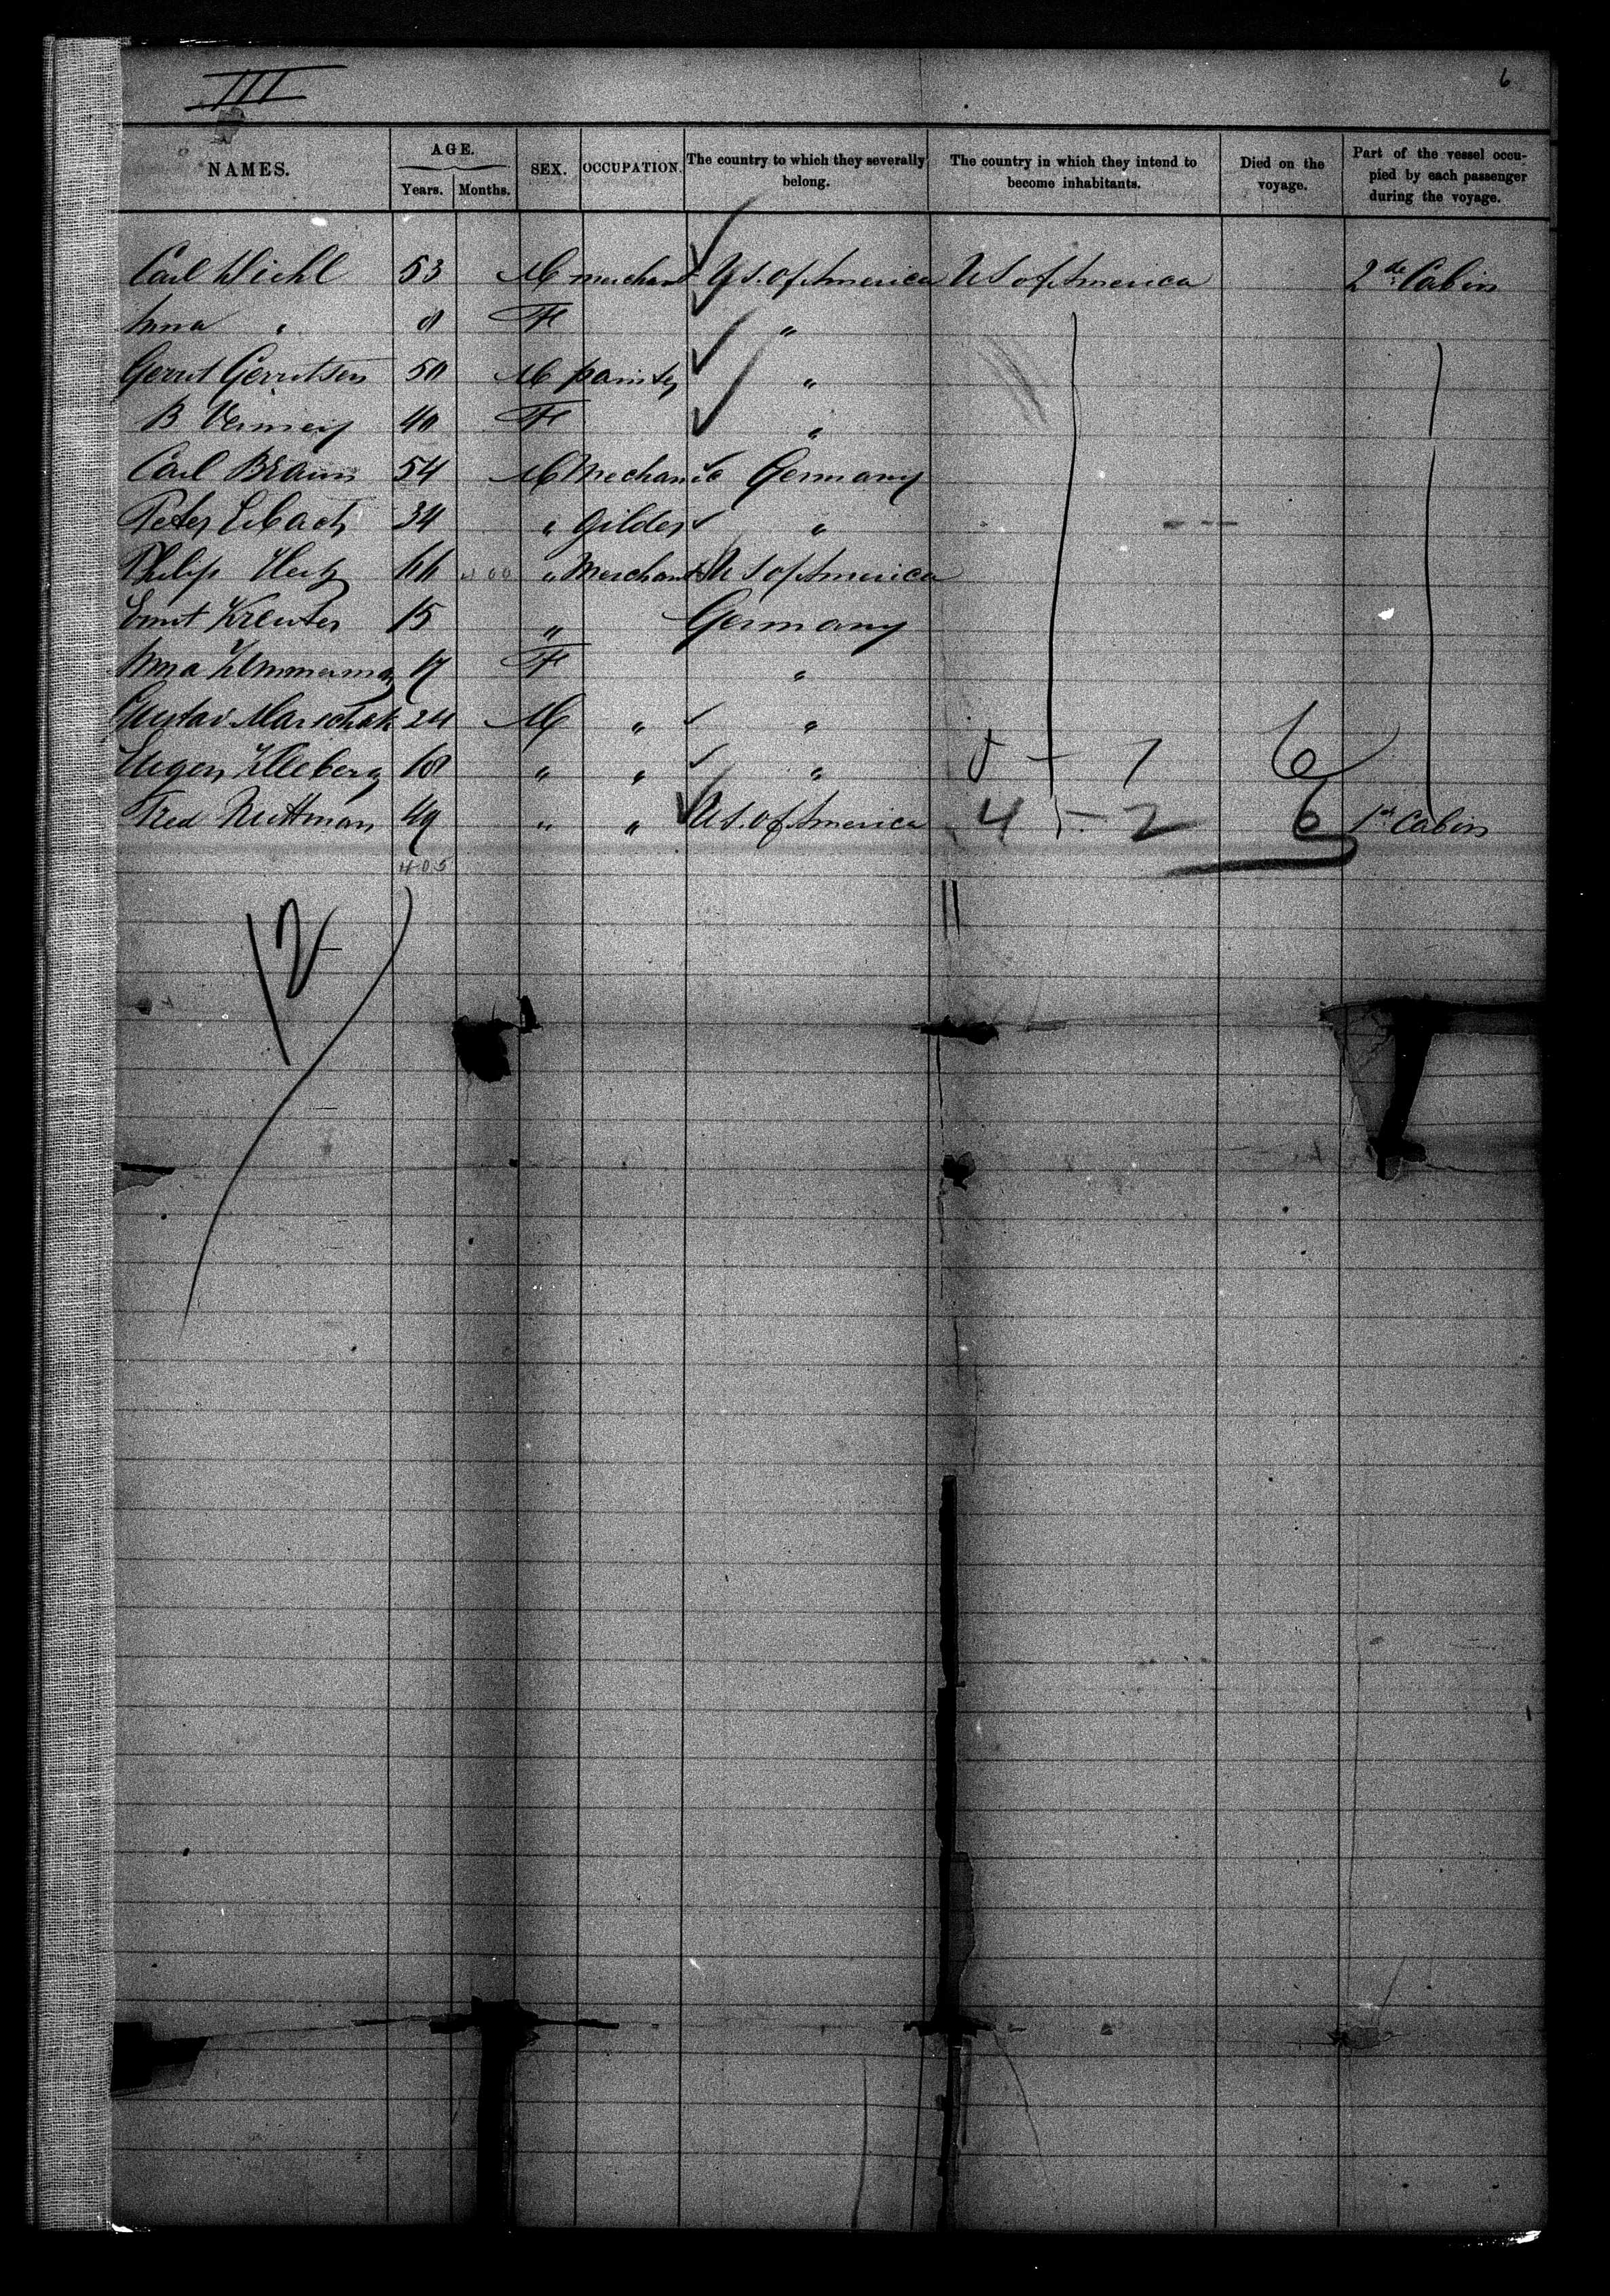 III
6
NAMES. AGE. Years. Months. SEX. OCCUPATION. The country to which they severally belong. The country in which they intend to become inhabitants. Died on the voyage. Part of the vessel occupied by each passenger during the voyage.
Carl Diehl 53 M merchant U S. of America U S of America 2de Cabin
Anna " F "
Gerrit Gerritsen 50 M painter "
B 40 F "
Carl Braun 54 M Mechanic Germany
Peter 34 " Gilder "
Philip " Merchant U S of America
Ernst Kreuter 15 " Germany
Anna 17 F "
Gustav Marschak 24 M " "
Eugen Kleberg 18 " " "
Fred 49 " " U S. of America 1st Cabin
5 - 1 6
4 - 2 6
405
12